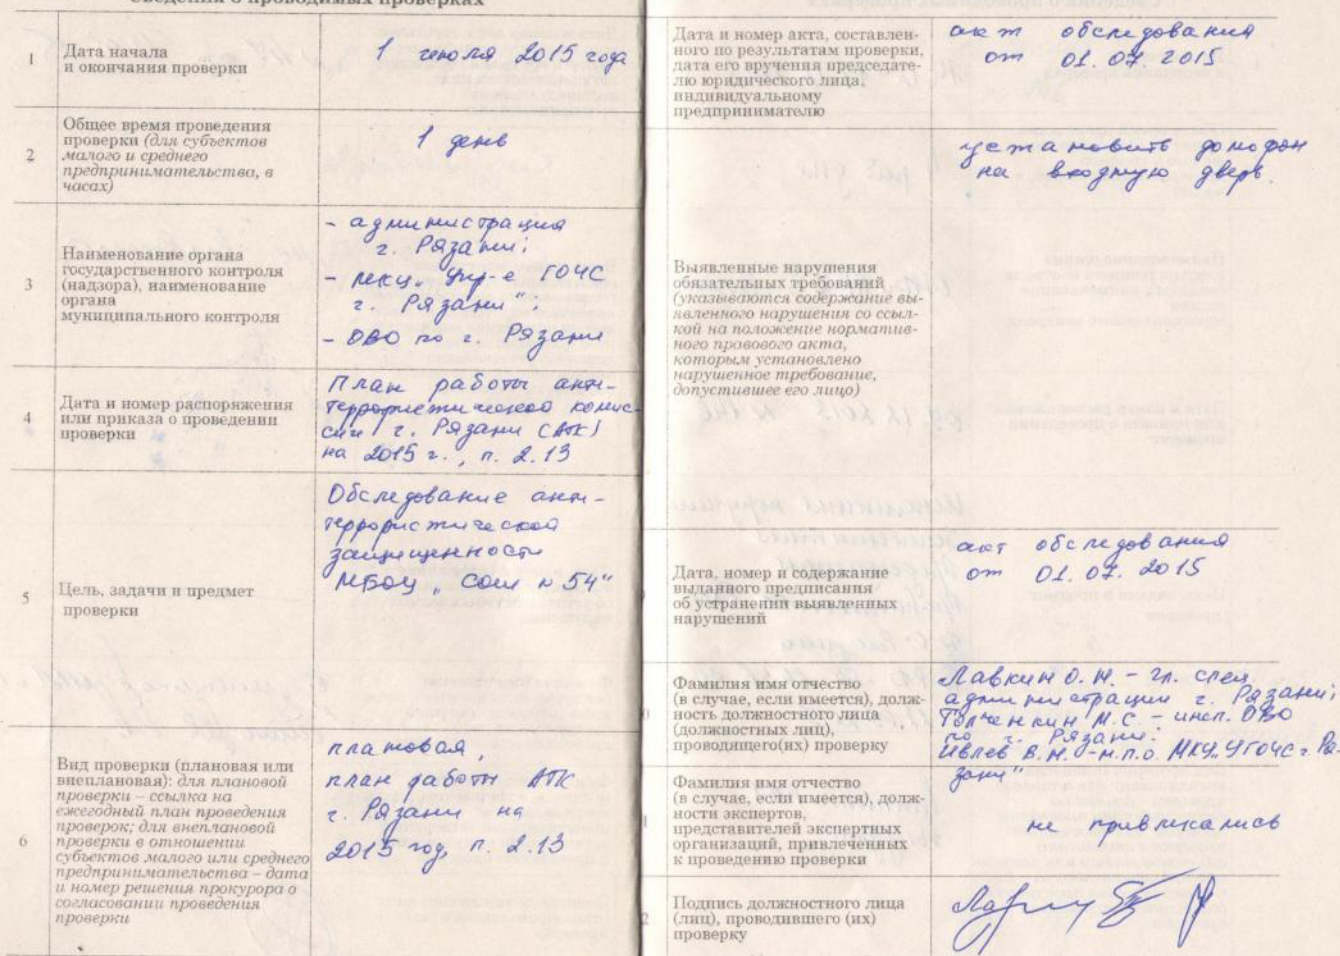 Сведения о проводимых проверках
1
Дата начала
и окончания проверки
1 июля 2015 года
2
Общее время проведения
проверки (для субъектов
малого и среднего
предпринимательства, в
часах)
1 день
3
Наименование органа
государственного контроля
(надзора), наименование
органа
муниципального контроля
- администрация
г. Рязани;
- МКУ „Упр-е ГОЧС
г. Рязани";
- ОВО по г. Рязани
4
Дата и номер распоряжения
или приказа о проведении
проверки
План работы анти-
террористической комис-
сии г. Рязани (АТК)
на 2015 г., п. 2.13
5
Цель, задачи и предмет
проверки
Обследование анти-
террористической
защищенности
МБОУ „СОШ № 54"
6
Вид проверки (плановая или
внеплановая): для плановой
проверки – ссылка на
ежегодный план проведения
проверок; для внеплановой
проверки в отношении
субъектов малого или среднего
предпринимательства – дата
и номер решения прокурора о
согласовании проведения
проверки
плановая,
план работы АТК
г. Рязани на
2015 год, п. 2.13
Дата и номер акта, составлен-
ного по результатам проверки,
дата его вручения представите-
лю юридического лица,
индивидуальному
предпринимателю
акт обследования
от 01.07.2015
Выявленные нарушения
обязательных требований
(указываются содержание вы-
явленного нарушения со ссыл-
кой на положение норматив-
ного правового акта,
которым установлено
нарушенное требование,
допустившее его лицо)
установить домофон
на входную дверь.
Дата, номер и содержание
выданного предписания
об устранении выявленных
нарушений
акт обследования
от 01.07.2015
0
Фамилия имя отчество
(в случае, если имеется), долж-
ность должностного лица
(должностных лиц),
проводящего(их) проверку
Лавкин О.Н. - гл. спец.
администрации г. Рязани;
М.С. - инсп. ОВО
по г. Рязани.
Ивлев В.Н. - м.п.о. МКУ „УГОЧС г. Ря-
зани"
1
Фамилия имя отчество
(в случае, если имеется), долж-
ности экспертов,
представителей экспертных
организаций, привлеченных
к проведению проверки
не привлекались
2
Подпись должностного лица
(лиц), проводившего (их)
проверку